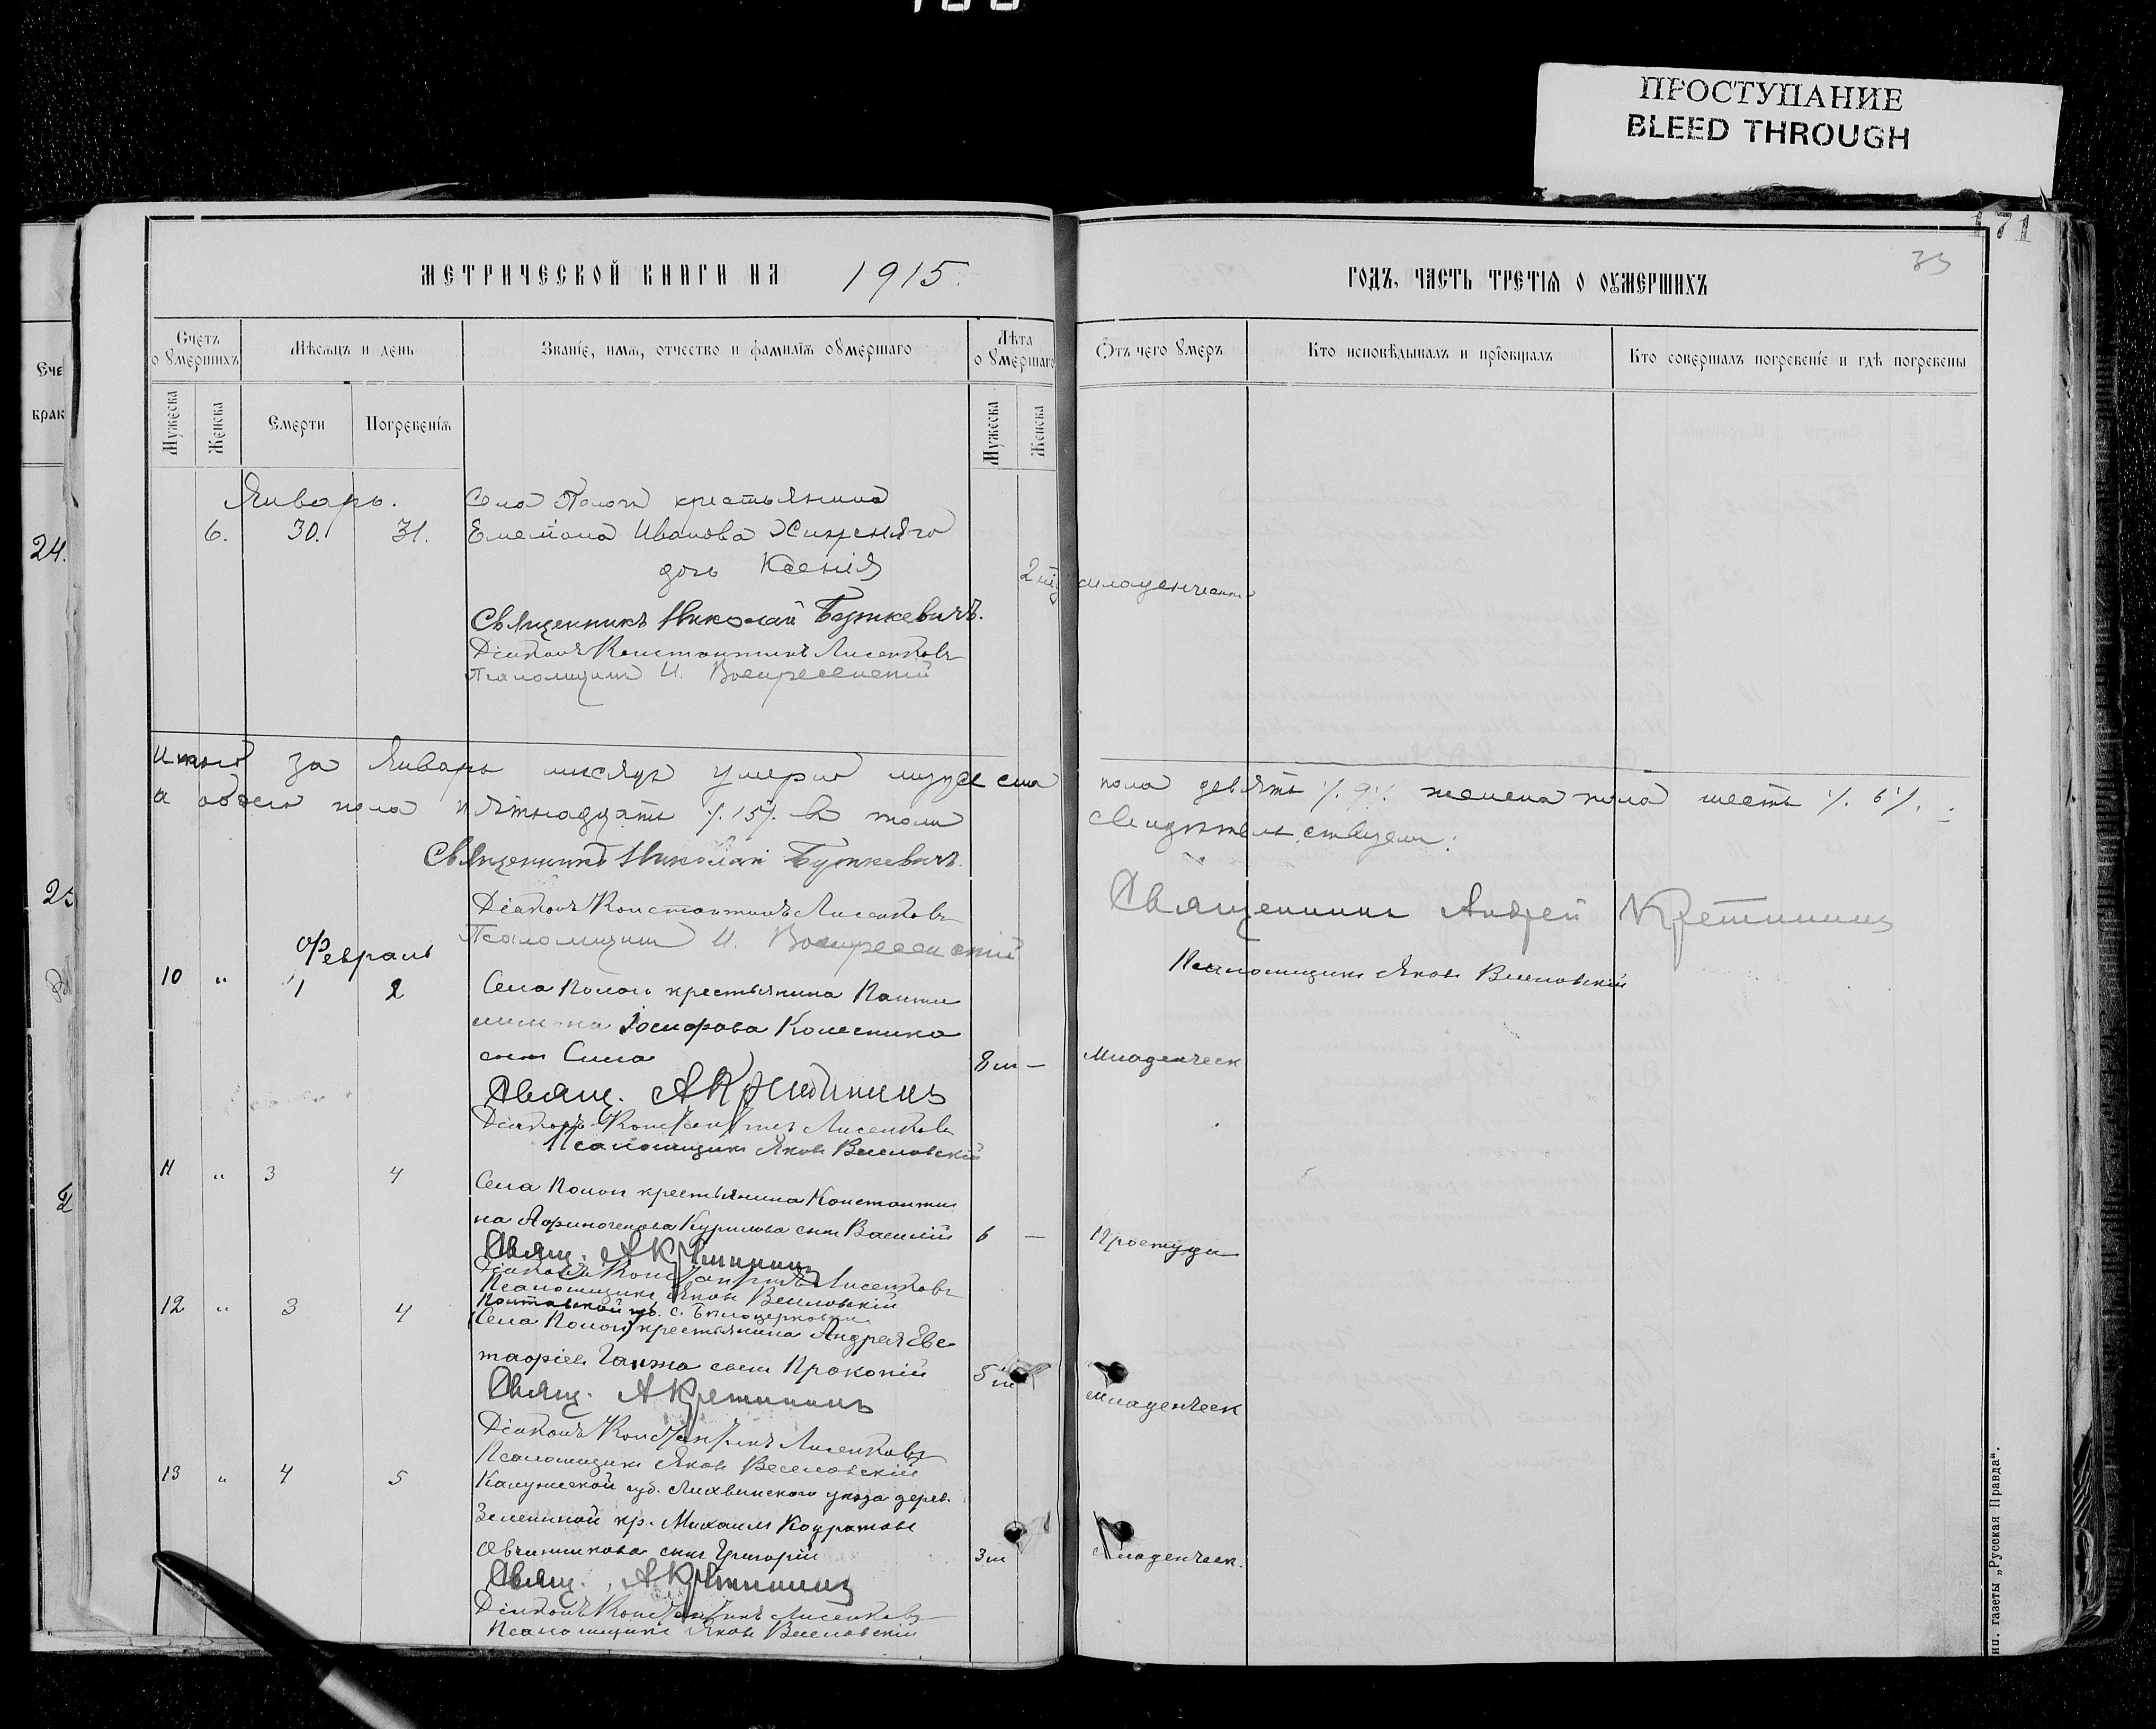 ПРОСТУПАНИЕ
BLEED THROUGH
171
33
МЕТРИЧЕСКОЙ КНИГИ НА 1915.
ГОДЪ, ЧАСТЬ ТРЕТІЯ О ОУМЕРШИХЪ
Счетъ о Умершихъ
Мѣсяцъ и день
Званіе, имя, отчество и фамилія оУмершаго
Лѣта оУмершаго
Отъ чего Умеръ
Кто исповѣдывалъ и пріобщалъ
Кто совершалъ погребеніе и гдѣ погребены
Мужеска
Женска
Смерти
Погребенія
Мужеска
Женска
Январь.
Села Пологи крестьянина
6. 30. 31. Иванова
дочь Ксенія
Священникъ Николай Буткевичъ.
Діаконъ Константинъ Лисенковъ
Псаломщикъ И. Воскресенскій
Итого за Январь мѣсяцъ умерло мужеска пола девять /. 9 /. женска пола шесть /. 6 /.
а обоего пола пятнадцать /. 15 /. в томъ свидѣтельствуемъ:
Священникъ Николай Буткевичъ.
Діаконъ Константинъ Лисенковъ
Псаломщикъ И. Воскресенскій
Священникъ Андрей Кретининъ
Псаломщикъ Яковъ Веселовскій
Февраль
10 " 1 2 Села Пологъ крестьянина Панте
леимона Іосифова Колесника
сынъ Сила 8 м — Младенческ
Свящ. А Кретининъ
Діаконъ Константинъ Лисенковъ
Псаломщикъ Яковъ Веселовскій
11 " 3 4 Села Пологъ крестьянина Константи
на Афиногенова Курилова сынъ Василій 6 — Простуда
Свящ. А Кретининъ
Діаконъ Константинъ Лисенковъ
Псаломщикъ Яковъ Веселовскій
Полтавской губ. с. Бѣлоцерковки
12 " 3 4 (Села Пологъ) крестьянина Андрея Евс
тафіев. Ганжа сынъ Прокопій 5 м Младенческ
Свящ. А Кретининъ
Діаконъ Константинъ Лисенковъ
Псаломщикъ Яковъ Веселовскій
13 " 4 5 Калужской губ. Лихвинского уѣзда дерев.
кр. Михаила Кондратова
Овчинникова сынъ Григорій 3 м Младенческ.
Свящ. А Кретининъ
Діаконъ Константинъ Лисенковъ
Псаломщикъ Яковъ Веселовскій
газеты „Русская Правда".
24.